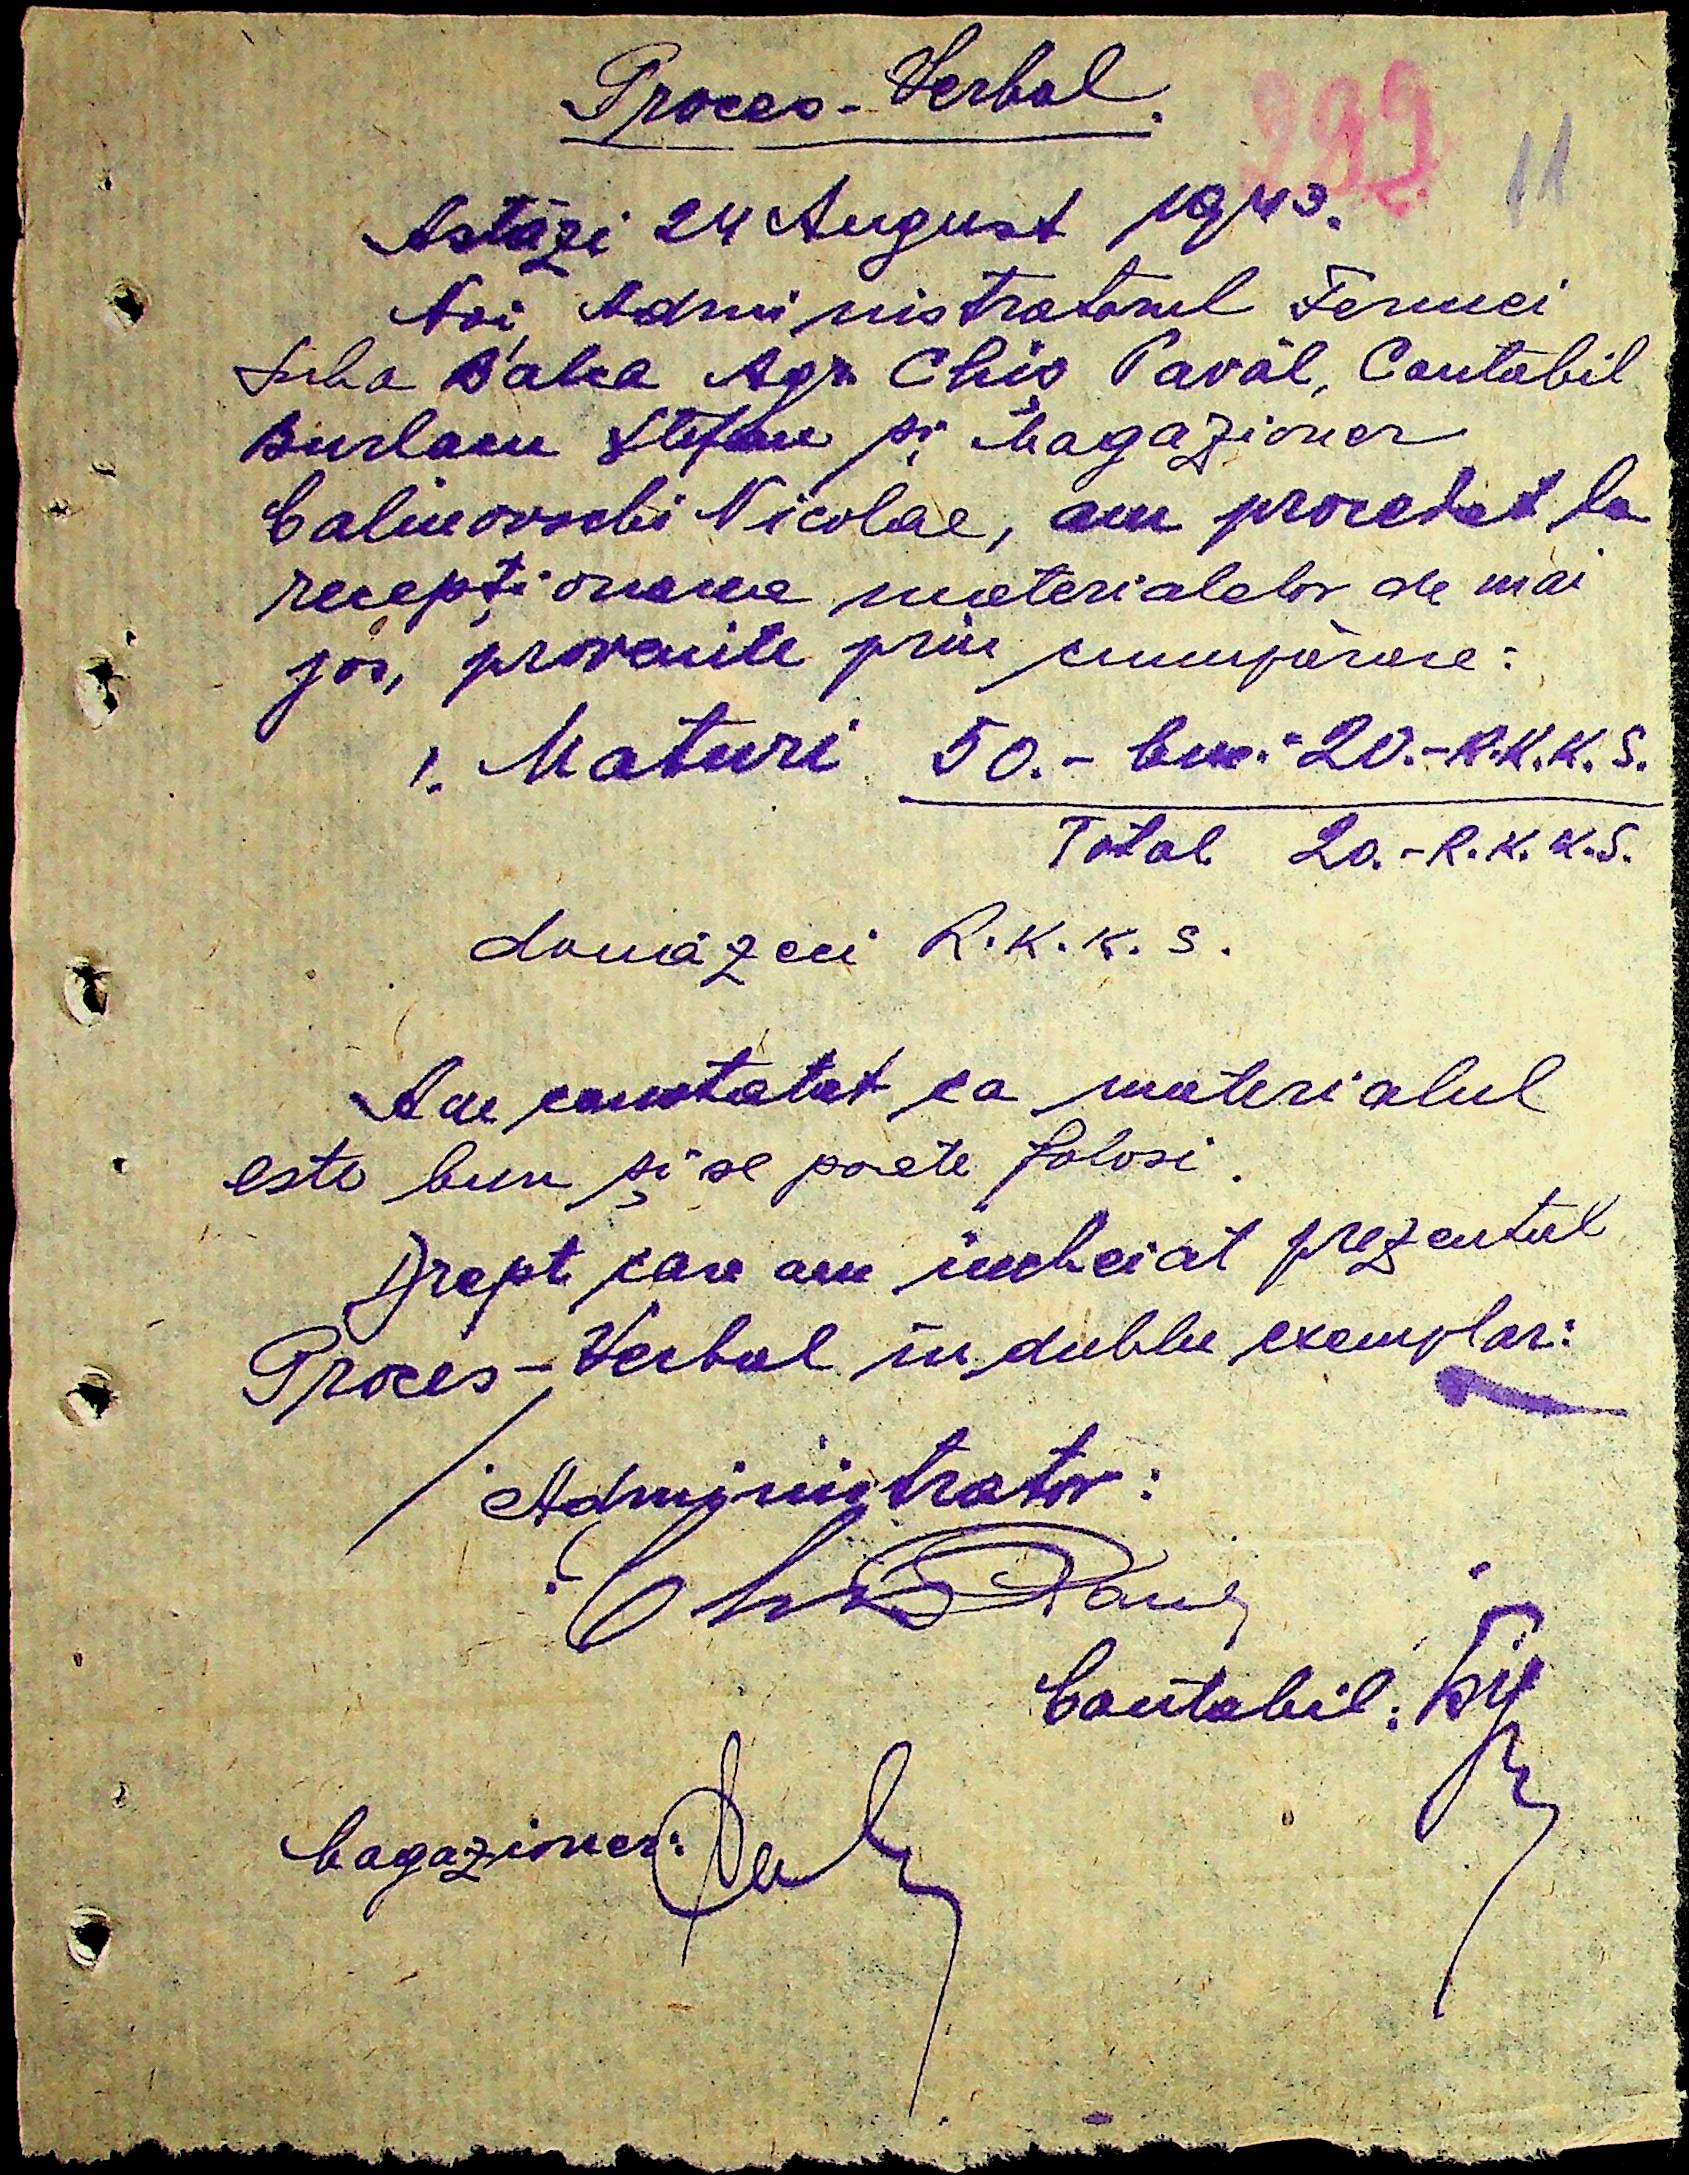 Proces-Verbal.
299
11
Astăzi 24 August 1943.
Noi, Administratorul Fermei
Suha Balca Agr. Chiș Pavăl, Contabil
Burlacu Ștefan și Magazioner
Calinovschi Nicolae, am procedat la
recepționarea materialelor de mai
jos, provenite prin cumpărare:
1. Maturi 50.- buc. 20.-R.K.K.S.
Total 20.-R.K.K.S.
douăzeci R.K.K.S.
Am constatat ca materialul
este bun și se poate folosi.
Drept care am încheiat prezentul
Proces-Verbal în dublu exemplar:
Administrator:
Contabil:
Magazioner: